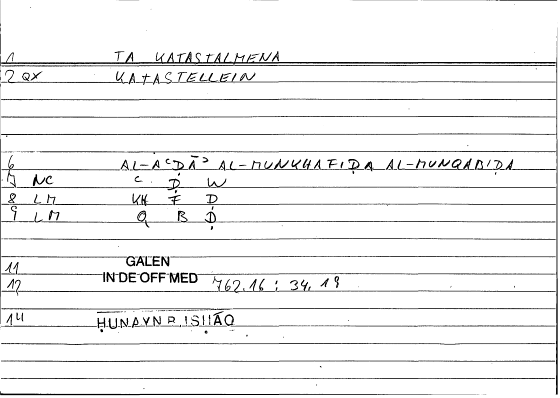 1 TA KATASTALMENA
2 QX KATASTELLEIN
6 AL-AʿḌĀʾ AL-MUNKHAFIḌA AL-MUNQABIḌA
7 NC ʿ Ḍ W
8 LM KH F Ḍ
9 LM Q B Ḍ
11 GALEN
12 IN DE OFF MED 762.16 : 34.19
14 ḤUNAYN B. ISḤĀQ